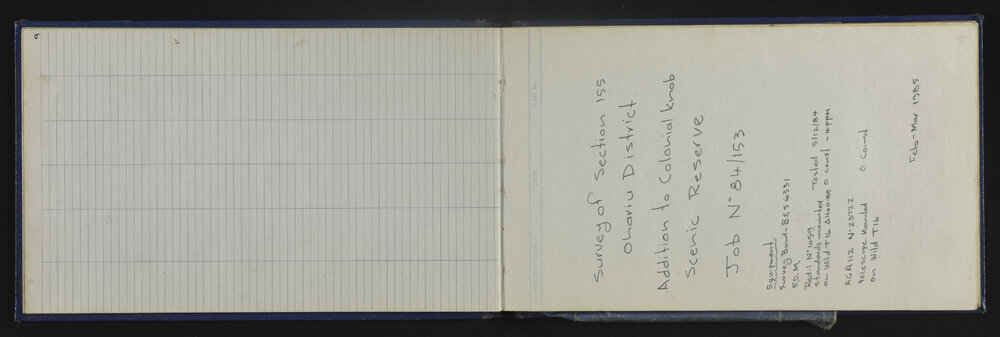 9
9
Survey of Section 155
Ohariu District
Addition to Colonial Knob
Scenic Reserve.
Job Nº 84/153
Equipment
Survey Band - BES 6331
E.D.M.
Nº 1099
standards mounted Tested 5/12/84
on Wild T16 0 const - 4 ppm
AGA 112 Nº 23722
telescope mounted 0 const
on Wild T16
Feb - Mar 1985
DATE
PLAN No.